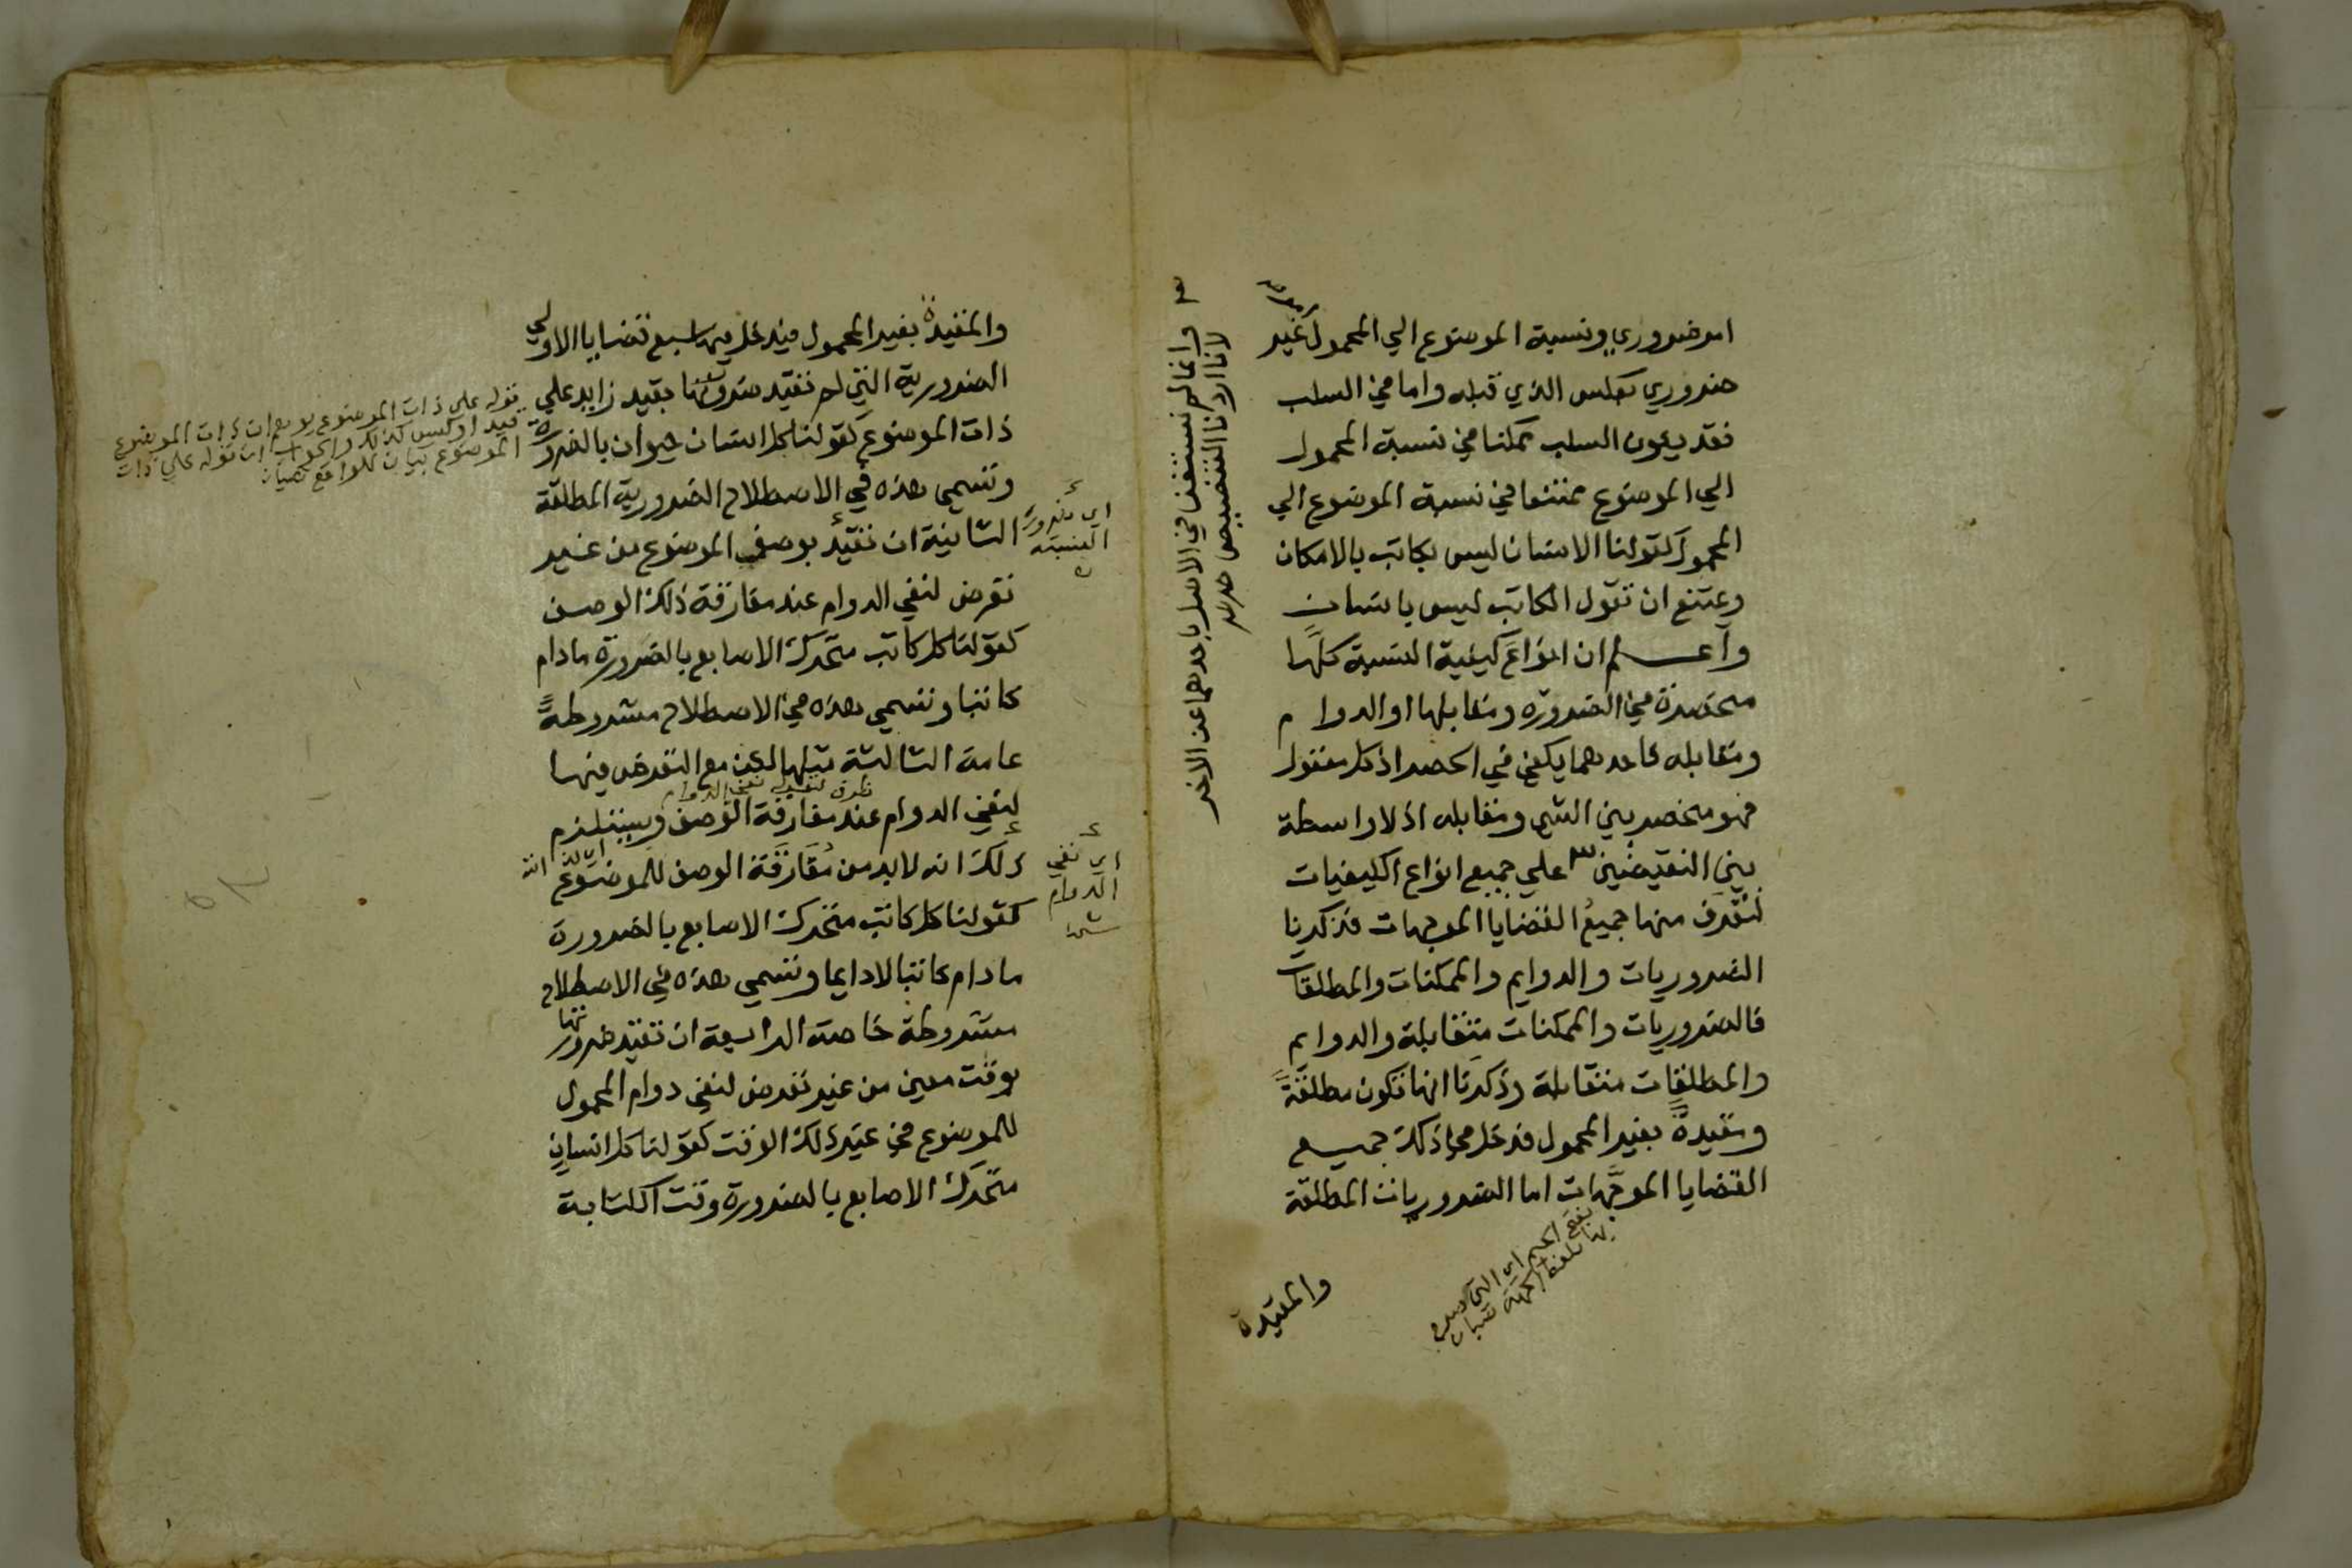 امر ضروري ونسبة الموضوع الي المحمول غير
ضروري بعكس الذي قبله واما في السلب
فقد يكون السلب ممكنا في نسبة المحمول
الي الموضوع ممتنعا في نسبة الموضوع الي
المحمول كقولنا الانسان ليس بكاتب بالامكان
ويمتنع ان تقول الكاتب ليس بانسان
واعلم ان انواع كيفية النسبة كلها
منحصرة في الضرورة ومقابلها او الدوام
ومقابله فاحدهما يكفي في الحصر اذ كل معقول
فهو منحصر بين الشي ومقابله اذ لا واسطة
بين النقيضين علي جميع انواع الكيفيات
لنعرف منها جميع القضايا الموجهات فذكرنا
الضروريات والدوايم والممكنات والمطلقات
فالضروريات والممكنات متقابلة والدوايم
والمطلقات متقابلة وذكرنا انها تكون مطلقة
ومقيدة بغير المحمول فدخل في ذلك جميع
القضايا الموجهات اما الضروريات المطلقة
بفتح الجيم اي التي
والمقيدة
وانما لم نستغن في الاصل باحدهما عن الاخر
لانا اردنا التنصيص
والمقيدة بغير المحمول فيدخل فيها سبع قضايا الاولي
الضرورية التي لم تقيد ضرورتها بقيد زايد علي
ذات الموضوع كقولنا كل انسان حيوان بالضرورة
وتسمي هذه في الاصطلاح الضرورية المطلقة
الثانية ان تقيد بوصف الموضوع من غير
تعرض لنفي الدوام عند مفارقة ذلك الوصف
كقولنا كل كاتب متحرك الاصابع بالضرورة ما دام
كاتبا وتسمي هذه في الاصطلاح مشروطة
عامة الثالثة مثلها لكن مع التعرض فيها
لنفي الدوام عند مفارقة الوصف ويستلزم
ذلك انه لا بد من مفارقة الوصف للموضوع
كقولنا كل كاتب متحرك الاصابع بالضرورة
ما دام كاتبا لا دايما وتسمي هذه في الاصطلاح
مشروطة خاصة الرابعة ان تقيد ضرورتها
بوقت معين من غير تعرض لنفي دوام المحمول
للموضوع في غير ذلك الوقت كقولنا كل انسان
متحرك الاصابع بالضرورة وقت الكتابة
اي ضرورة
النسبة
اي نفي
الدوام
قوله علي ذات الموضوع يوهم ان ذات الموضوع
قيد وليس كذلك والجواب ان قوله علي ذات
الموضوع بيان للواقع